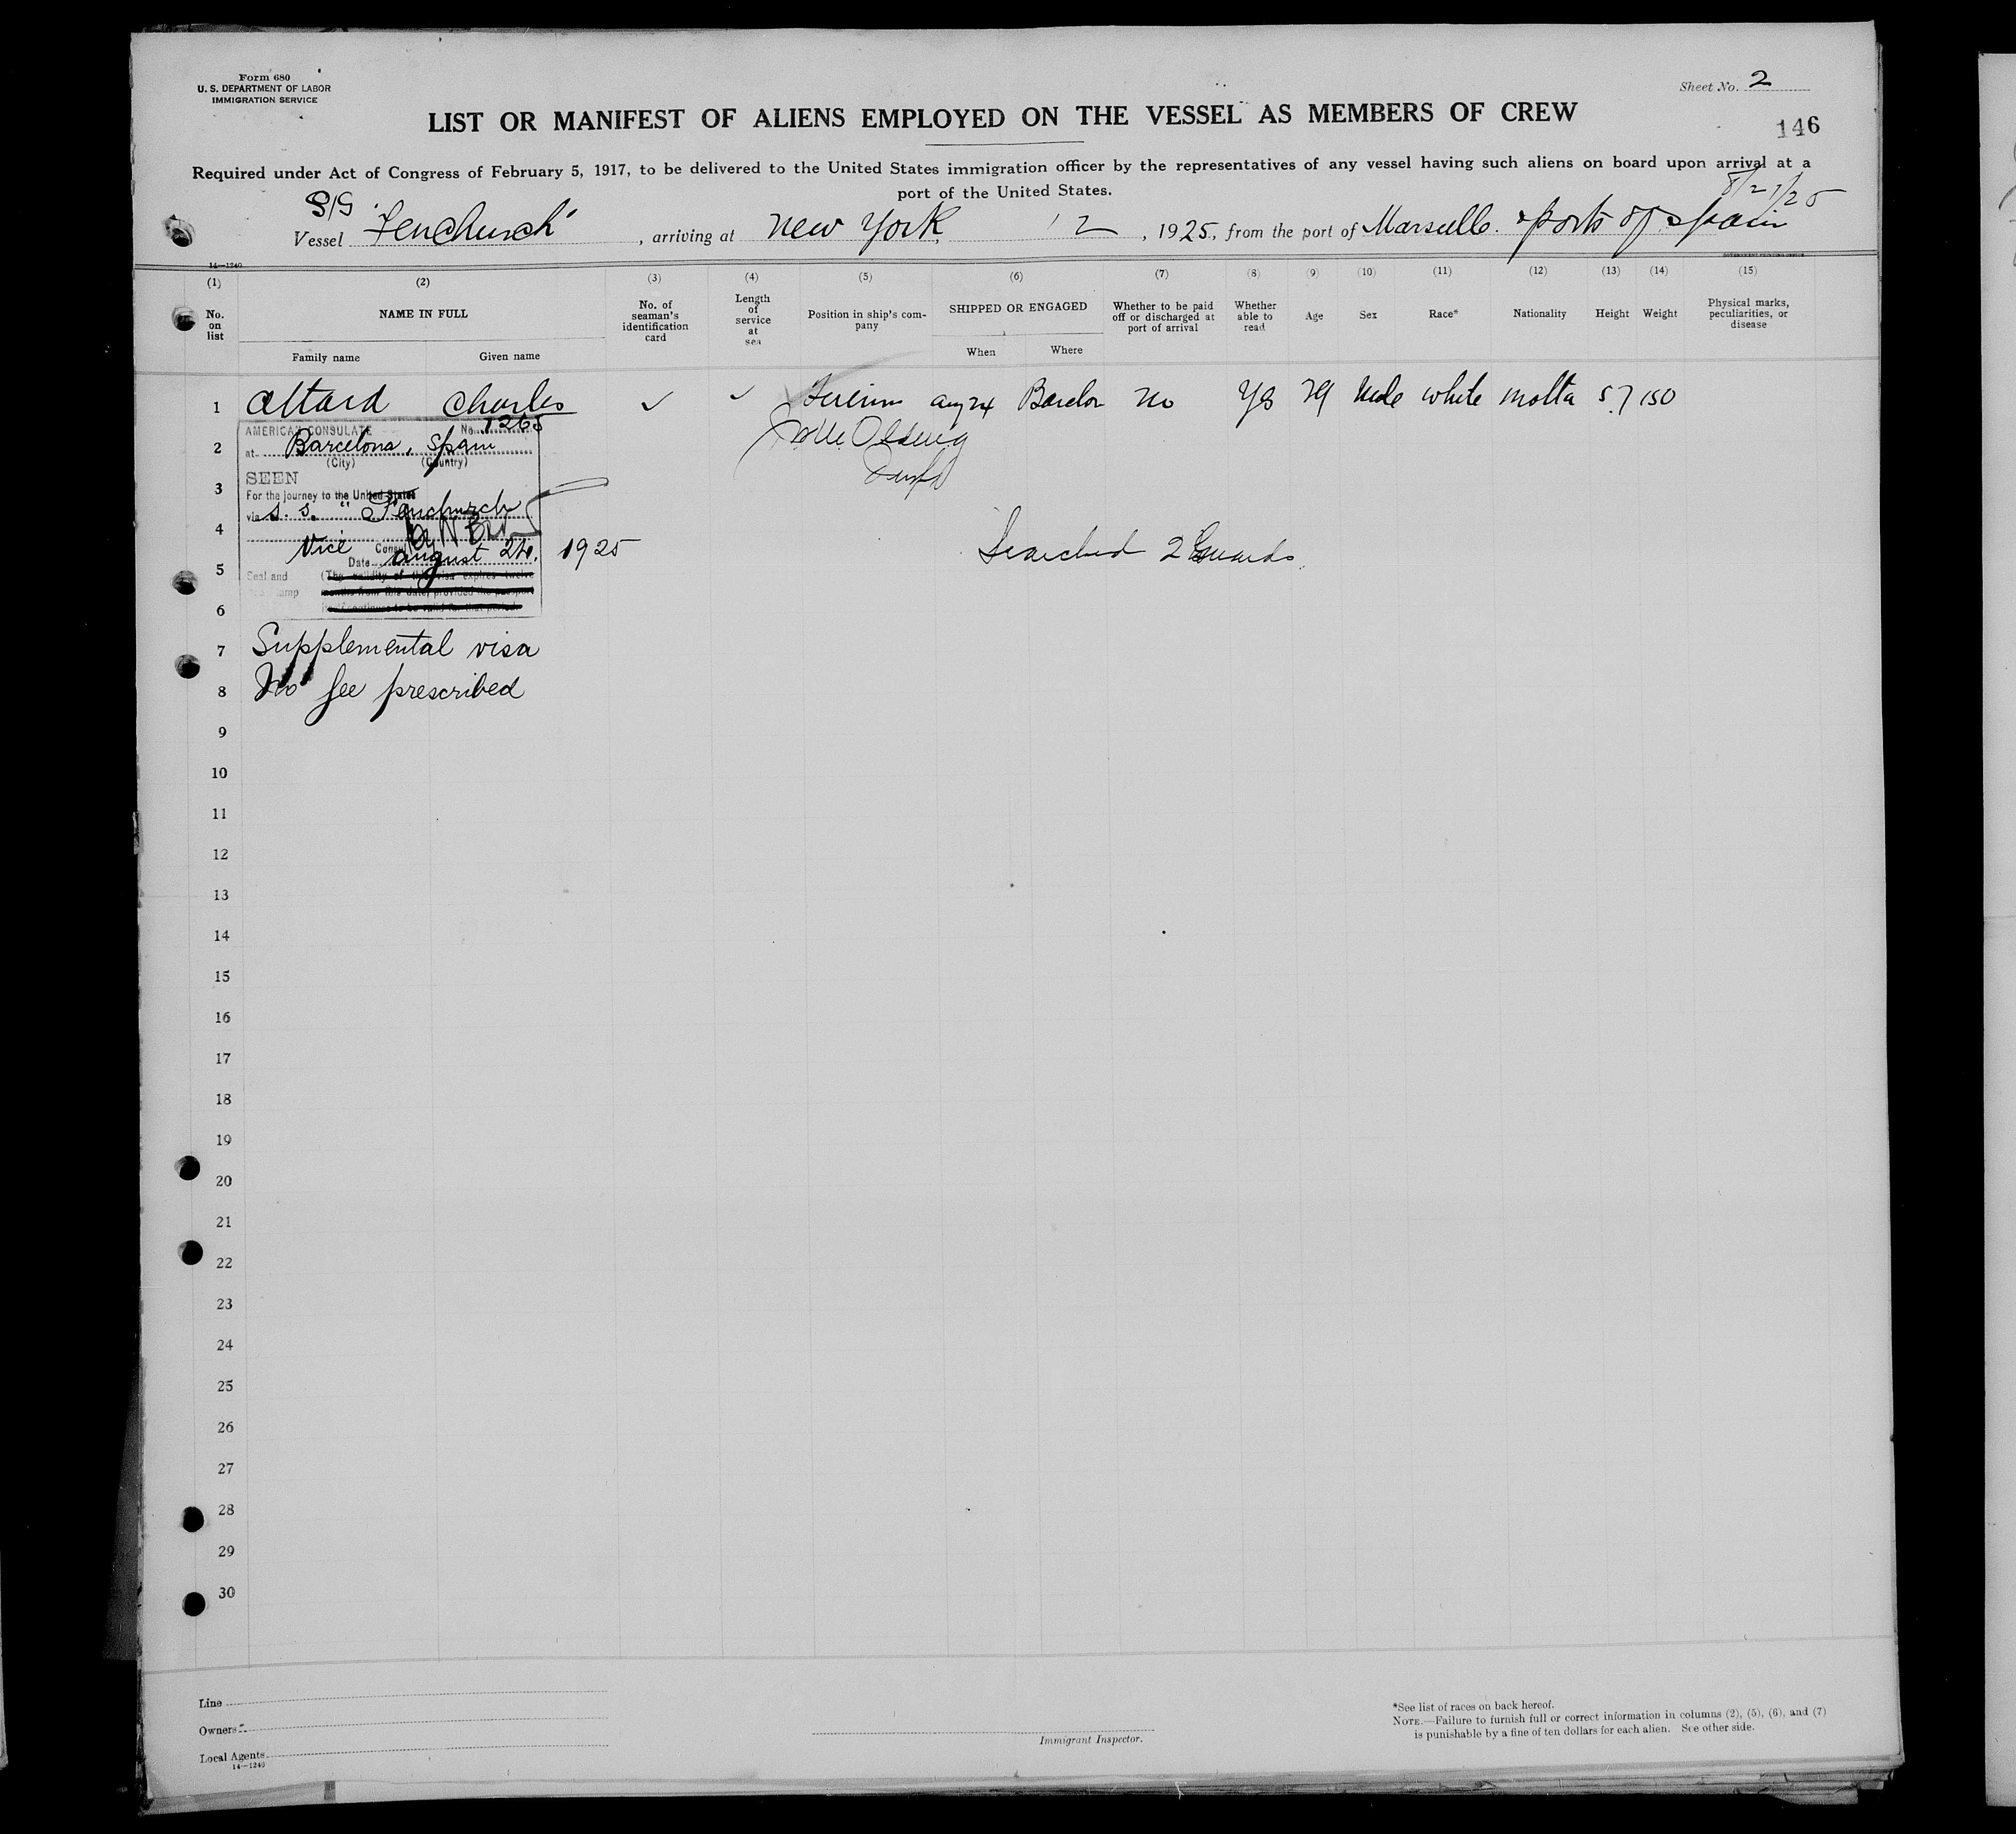 Form 680
U. S. DEPARTMENT OF LABOR
IMMIGRATION SERVICE
Sheet No. 2
LIST OR MANIFEST OF ALIENS EMPLOYED ON THE VESSEL AS MEMBERS OF CREW
146
Required under Act of Congress of February 5, 1917, to be delivered to the United States immigration officer by the representatives of any vessel having such aliens on board upon arrival at a
port of the United States.
S/S
Vessel "Fenchurch", arriving at New York, 12, 1925, from the port of Marseille. ports of Spain
14—1240
GOVERNMENT PRINTING OFFICE
(1) (2) (3) (4) (5) (6) (7) (8) (9) (10) (11) (12) (13) (14) (15)
No. on list
NAME IN FULL
Family name Given name
No. of seaman's identification card
Length of service at sea
Position in ship's company
SHIPPED OR ENGAGED
When Where
Whether to be paid off or discharged at port of arrival
Whether able to read
Age
Sex
Race*
Nationality
Height
Weight
Physical marks, peculiarities, or disease
1 Attard Charles ✓ ✓ Aug 24 Barcelon No Yes Male white Malta 5.7 150
AMERICAN CONSULATE No. 1265
2 at Barcelona, Spain
(City) (Country)
SEEN
3 For the journey to the United States
via S. S. "Fenchurch
4
Vice Consul
Date August 24. 1925
Searched 2 Guards.
5 Seal and (The validity of this visa expires twelve
stamp months from this date, provided the passport
6 continues to be valid for that period.
7 Supplemental visa
8 No fee prescribed
9
10
11
12
13
14
15
16
17
18
19
20
21
22
23
24
25
26
27
28
29
30
Line
Owners
Local Agents
14—1240
Immigrant Inspector.
*See list of races on back hereof.
NOTE.—Failure to furnish full or correct information in columns (2), (5), (6), and (7)
is punishable by a fine of ten dollars for each alien. See other side.